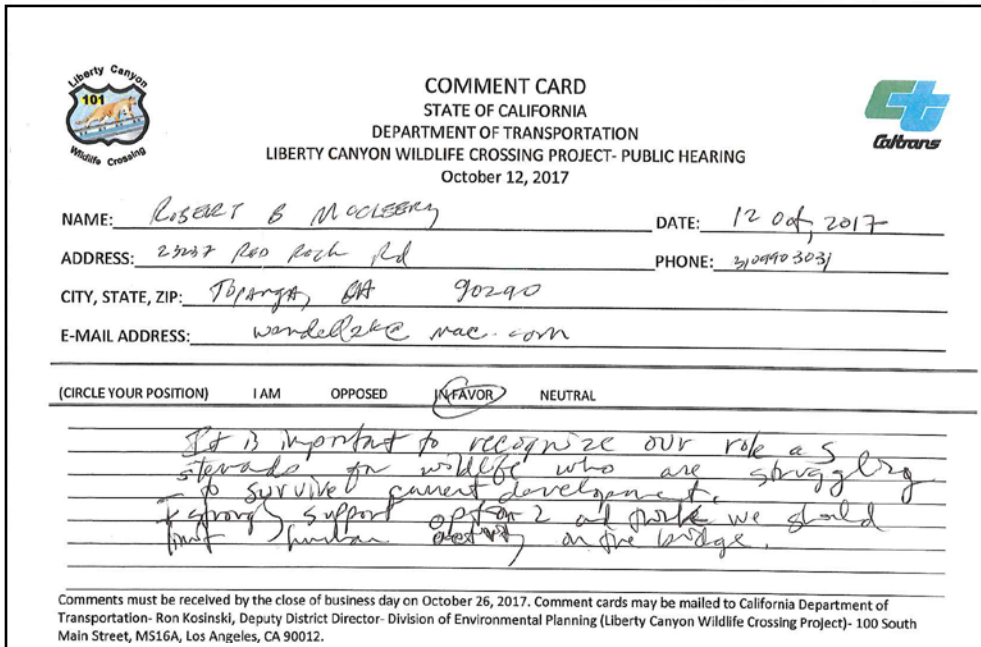 Liberty Canyon
101
Wildlife Crossing
COMMENT CARD
STATE OF CALIFORNIA
DEPARTMENT OF TRANSPORTATION
LIBERTY CANYON WILDLIFE CROSSING PROJECT- PUBLIC HEARING
October 12, 2017
Caltrans
NAME: ROBERT B MCCLEERY DATE: 12 Oct, 2017
ADDRESS: Red Rock Rd PHONE: 3109903031
CITY, STATE, ZIP: Topanga, CA 90290
E-MAIL ADDRESS: mac.com
(CIRCLE YOUR POSITION) I AM OPPOSED IN FAVOR NEUTRAL
It is important to recognize our role as
stewards for wildlife who are struggling
to survive current development.
I strongly support option 2 and think we should
limit human activity on the bridge.
Comments must be received by the close of business day on October 26, 2017. Comment cards may be mailed to California Department of
Transportation- Ron Kosinski, Deputy District Director- Division of Environmental Planning (Liberty Canyon Wildlife Crossing Project)- 100 South
Main Street, MS16A, Los Angeles, CA 90012.